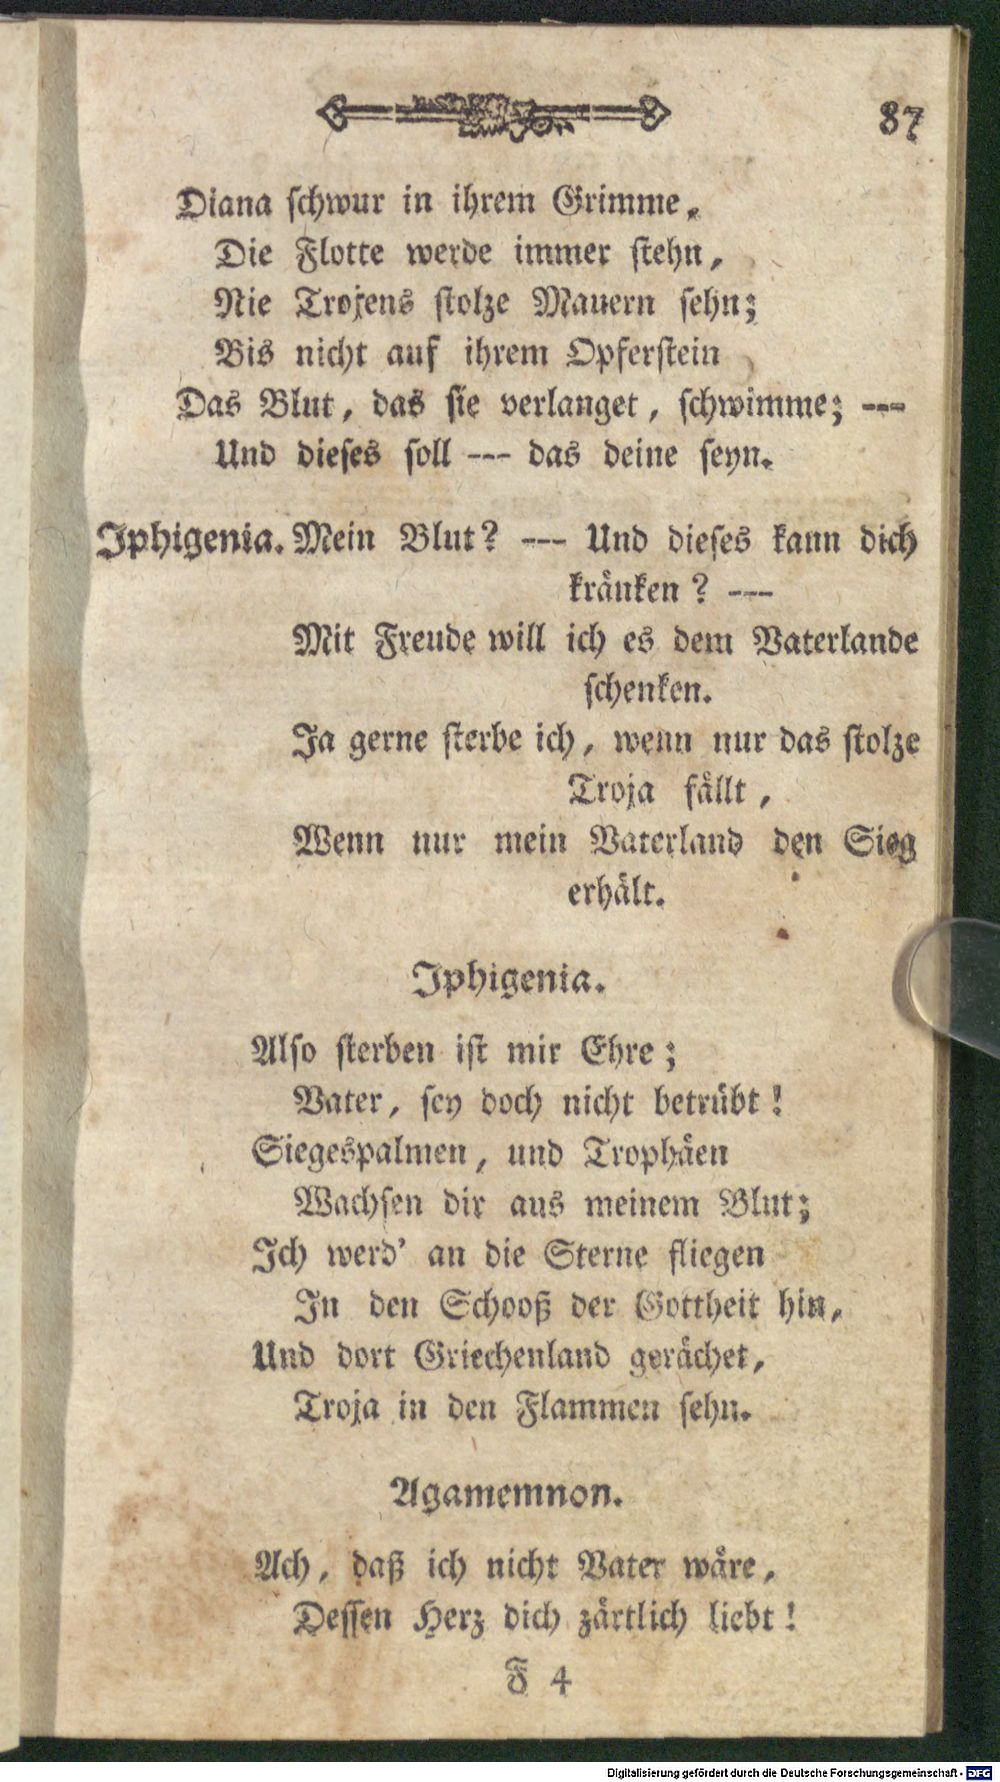 87
Diana schwur in ihrem Grimme,
Die Flotte werde immer stehn,
Nie Trojens stolze Mauern sehn;
Bis nicht auf ihrem Opferstein
Das Blut, das sie verlanget, schwimme; ---
Und dieses soll --- das deine seyn.
Iphigenia. Mein Blut? --- Und dieses kann dich
kränken? ---
Mit Freude will ich es dem Vaterlande
schenken.
Ja gerne sterbe ich, wenn nur das stolze
Troja fällt,
Wenn nur mein Vaterland den Sieg
erhält.
Iphigenia.
Also sterben ist mir Ehre;
Vater, sey doch nicht betrübt!
Siegespalmen, und Trophäen
Wachsen dir aus meinem Blut;
Ich werd' an die Sterne fliegen
In den Schooß der Gottheit hin,
Und dort Griechenland gerächet,
Troja in den Flammen sehn.
Agamemnon.
Ach, daß ich nicht Vater wäre,
Dessen Herz dich zärtlich liebt!
F 4
Digitalisierung gefördert durch die Deutsche Forschungsgemeinschaft - DFG